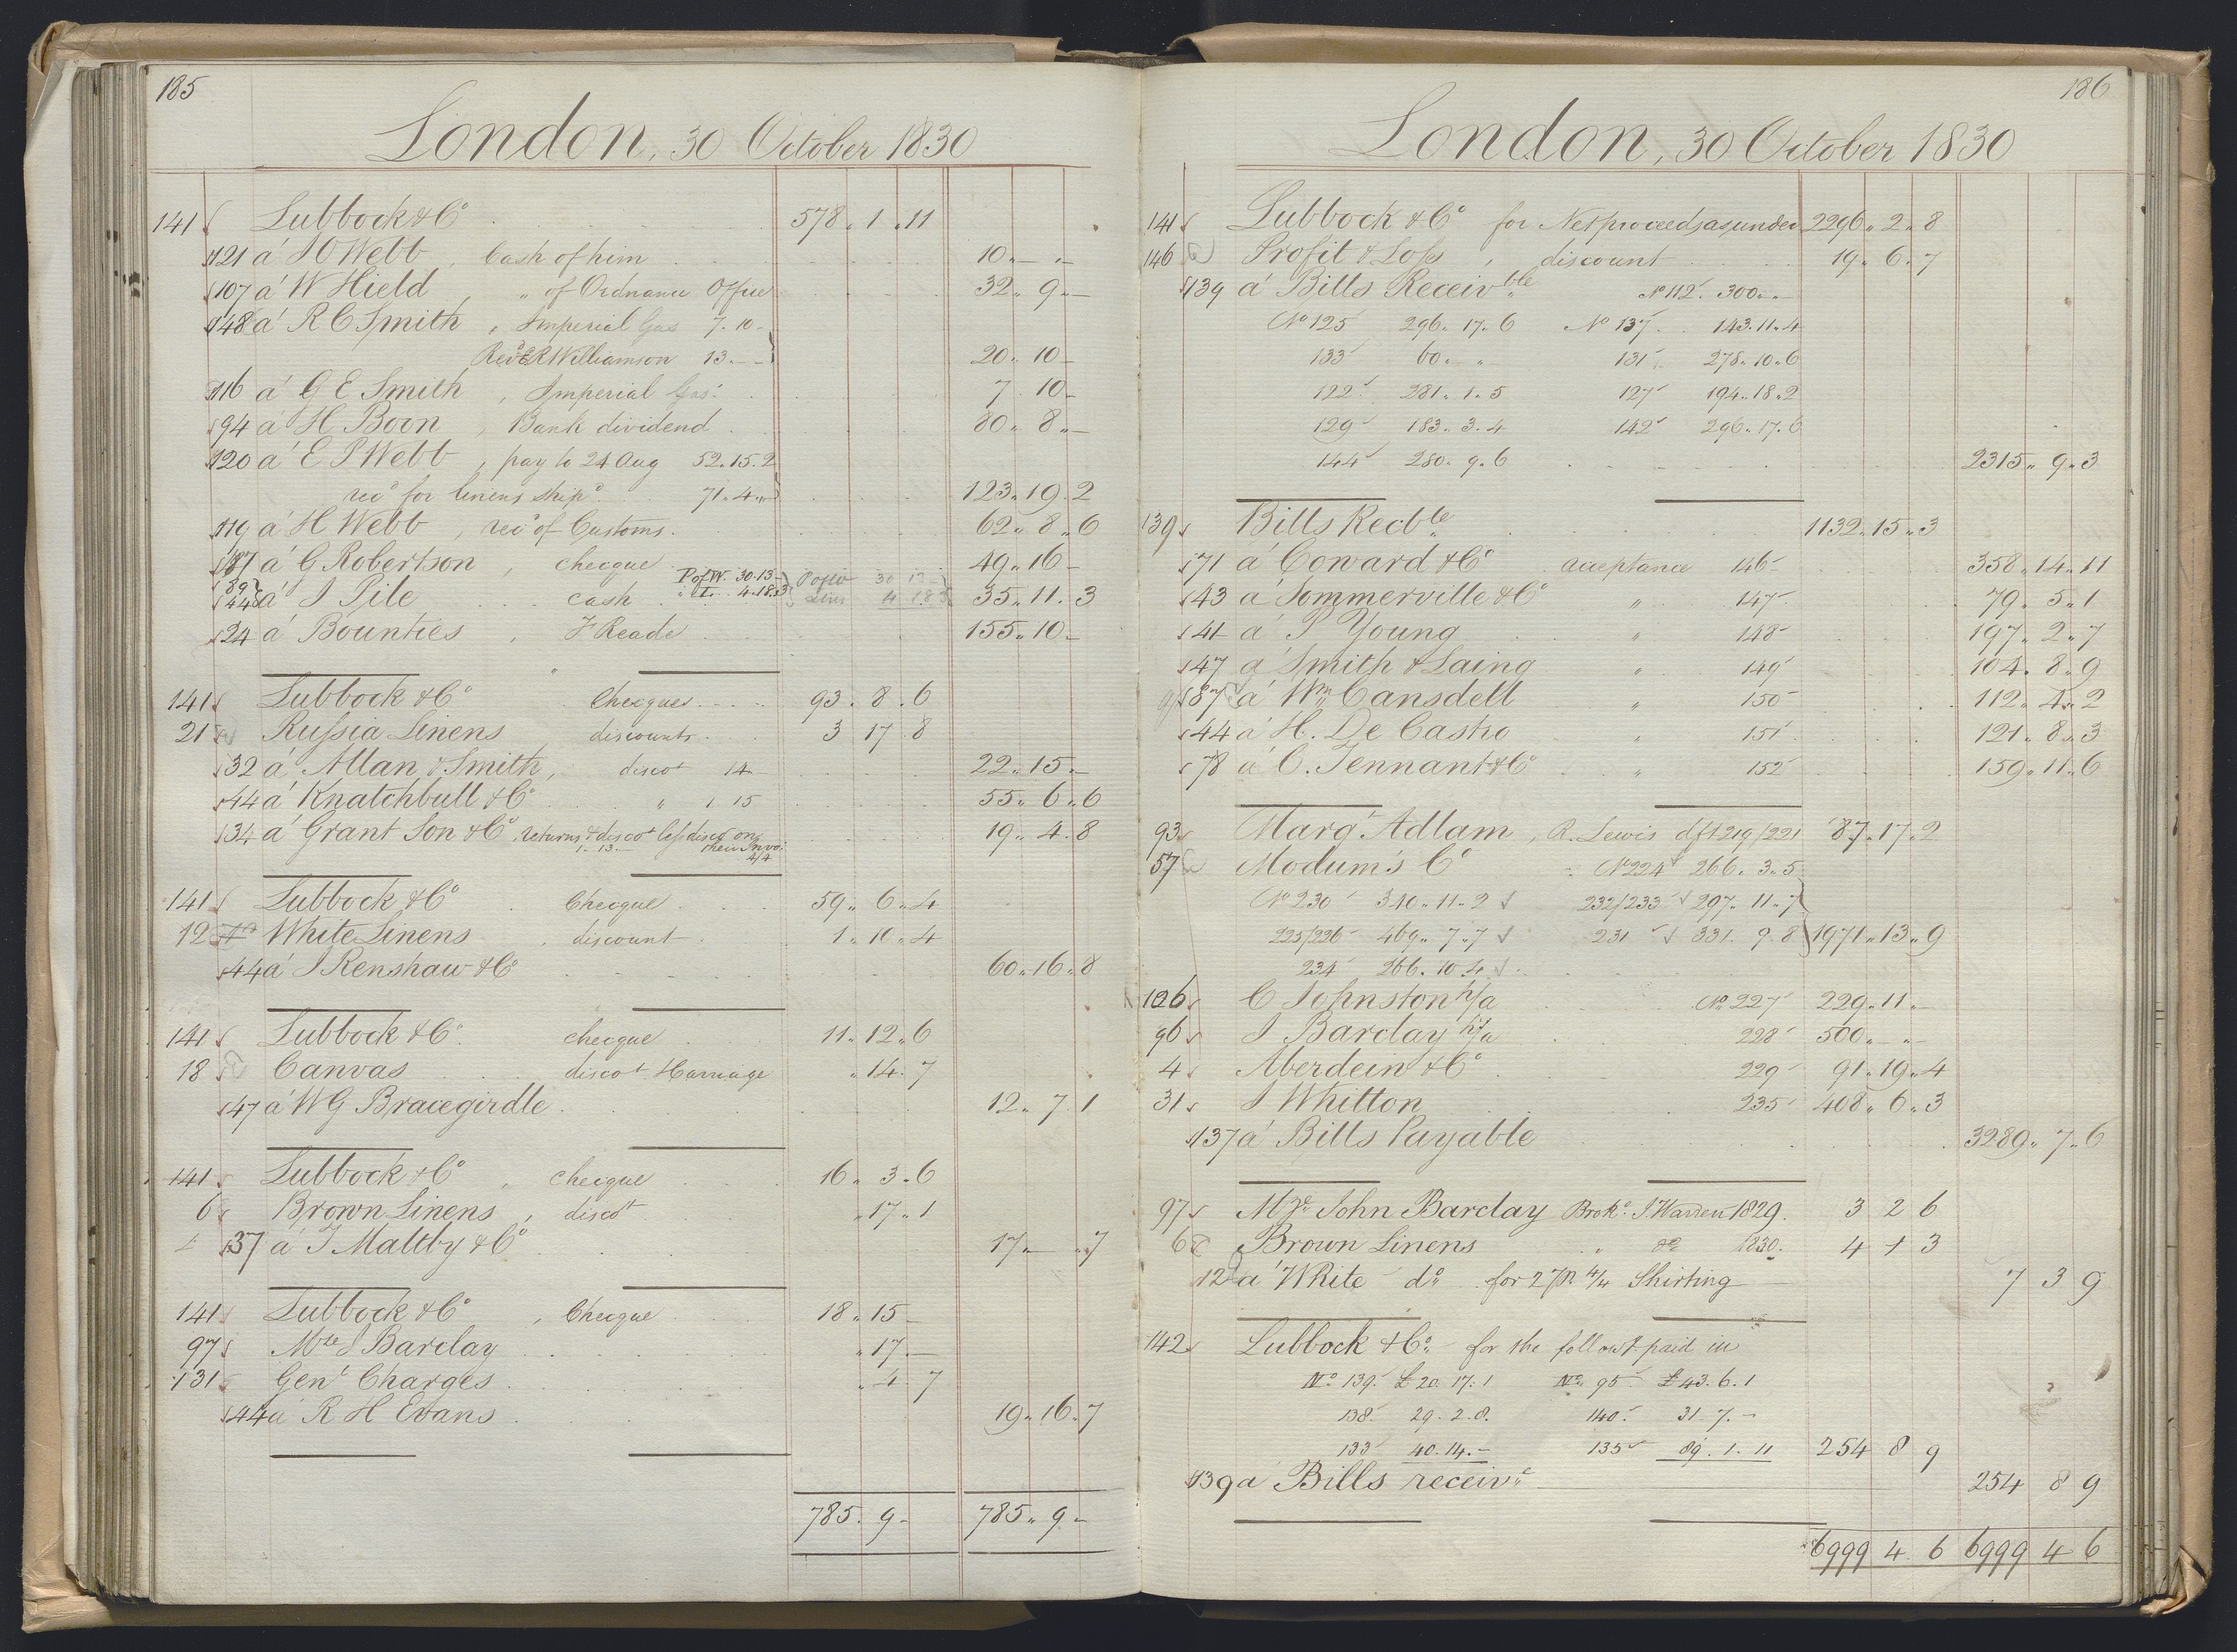 185
London, 30 October 1830
141 Lubbock & Co 578 „ 1 „ 11
121 á J O Webb, Cash of him 10 „ — „ —
107 á W Hield „ of Ordnance Office 32 „ 9 „ —
148 á R C Smith „ Imperial Gas 7. 10 -
Revd E R Williamson 13. — - 20 „ 10 —
116 á G E Smith, Imperial Gas. 7 „ 10 —
94 á H Boon, Bank dividend 80 „ 8 „ —
120 á E P Webb, pay to 24 Aug 52. 15. 2
recd for linens shipd 71 „ 4 „ — 123 „ 19. 2
119 á H Webb, recd of Customs 62 „ 8 „ 6
187 á G Robertson, checque 49 „ 16 —
89 P of W. 30. 13 — 30 13 —
44 á J Pile cash „ L. 4. 18. 3 4 18 3 35 „ 11. 3
24 á Bounties, F Reade 155 „ 10 —
141 Lubbock & Co Checques 93 . 8 . 6
21 Russia Linens discounts 3 17 8
32 á Allan & Smith, discot 14 22 „ 15 „ —
44 á Knatchbull & Co „ 1 15 55 „ 6 „ 6
34 á Grant Son & Co, returns & discot less discot on 19 „ 4. 8
1. 13. — their Invoi.
4/4
141 Lubbock & Co Checque 59 „ 6 „ 4
12 White Linens, discount 1 „ 10 „ 4
44 á J Renshaw & Co 60 „ 16 „ 8
141 Lubbock & Co. checque 11 „ 12 „ 6
18 Canvas discot & Carriage „ 14. 7
47 á W G Bracegirdle 12 „ 7. 1
141 Lubbock & Co, checque 16 „ 3 „ 6
6 Brown Linens, discot „ 17 „ 1
37 á J Maltby & Co 17 „ — „ 7
141 Lubbock & Co, Checque 18 „ 15 —
97 J Barclay „ 17. —
131 Genl Charges „ 4 7
44 á R H Evans 19 „ 16. 7
785. 9 - 785 „ 9 „ -
186
London, 30 October 1830
141 Lubbock & Co for Net proceeds as under 2296 „ 2 „ 8
146 Profit & Loss, discount 19 „ 6. 7
139 á Bills Receivble No 112. 300 „ „ —
No 125 296. 17. 6 No 137. 143. 11. 4
133 60 „ „ 131 278. 10. 6
122 281. 1. 5 127 194. 18. 2
129 183. 3. 4 142 296. 17. 6
144 280. 9. 6 2315 „ 9 „ 3
139 Bills Recble 1132 „ 15 „ 3
71 á Coward & Co acceptance 146 358 „ 14 „ 11
43 á Sommerville & Co „ 147 79 „ 5 „ 1
41 á P Young „ 148 197 „ 2 „ 7
47 á Smith & Laing „ 149 104. 8 „ 9
87 á Wm Cansdell „ 150 112 „ 4 „ 2
44 á H. De Castro „ 151 121 „ 8 „ 3
78 á C. Tennant & Co „ 152 159 „ 11 „ 6
93 Margt Adlam, R. Lewis dft 219/221 87 „ 17 „ 2
57 Modum's Co No 224 266. 3. 5
No 230 340 „ 11 „ 2 232/233 297. 11. 7
225/226 469 „ 7. 7 231 331. 9. 8 1971 „ 13 „ 9
234 266. 10. 4
126 C Johnston h/a No 227 229 „ 11 „ —
96 J Barclay h/a 228 500 „ „ -
4 Aberdein & Co 229 91 „ 19 „ 4
31 J Whitton 235 408 „ 6 „ 3
137 á Bills Payable 3289 „ 7 „ 6
97 John Barclay Broke. J Warden 1829. 3 2 6
6 Brown Linens „ do 1830. 4 1 3
12 á White do for 27 ps 4/4 Shirting 7 3 9
142 Lubbock & Co. for the followg paid in
No. 139. £20. 17. 1 No. 95. £43. 6. 1
138. 29. 2. 8. 140. 31. 7. -
133 40. 14. - 135 89. 1. 11 254 8 9
139 á Bills receive 254 8 9
6999 4 6 6999 4 6